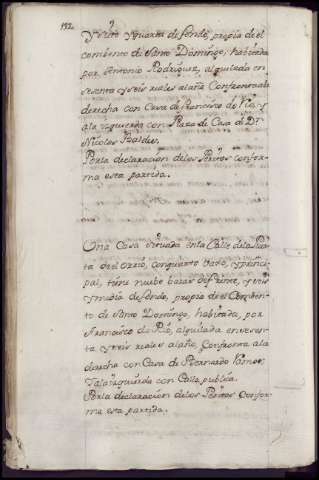 152
y siete y quarta de fondo, propia de el
combento de Santo Domingo, habitada
por Antonio Rodriguez, alquilada en
sesenta y seis reales al año Confronta a la
derecha con Casa de Francisco de
a la izquierda con Plaza de Casa de Dn
Nicolas Baldes.
Por la declaracion de los Peritos confor-
ma esta partida.
Una Casa situada en la Calle de la
del con quarto baxo, y prinzi-
pal, tiene nuebe baras de frente, y seis
y media de fondo, propia de el Comben-
to de Santo Domingo, habitada, por
Francisco de alquilada en sesen-
ta y seis reales al año, Confronta a la
derecha con Casa de Bernardo
y a la izquierda con Calle publica.
Por la declaracion de los Peritos Confor-
ma esta partida.